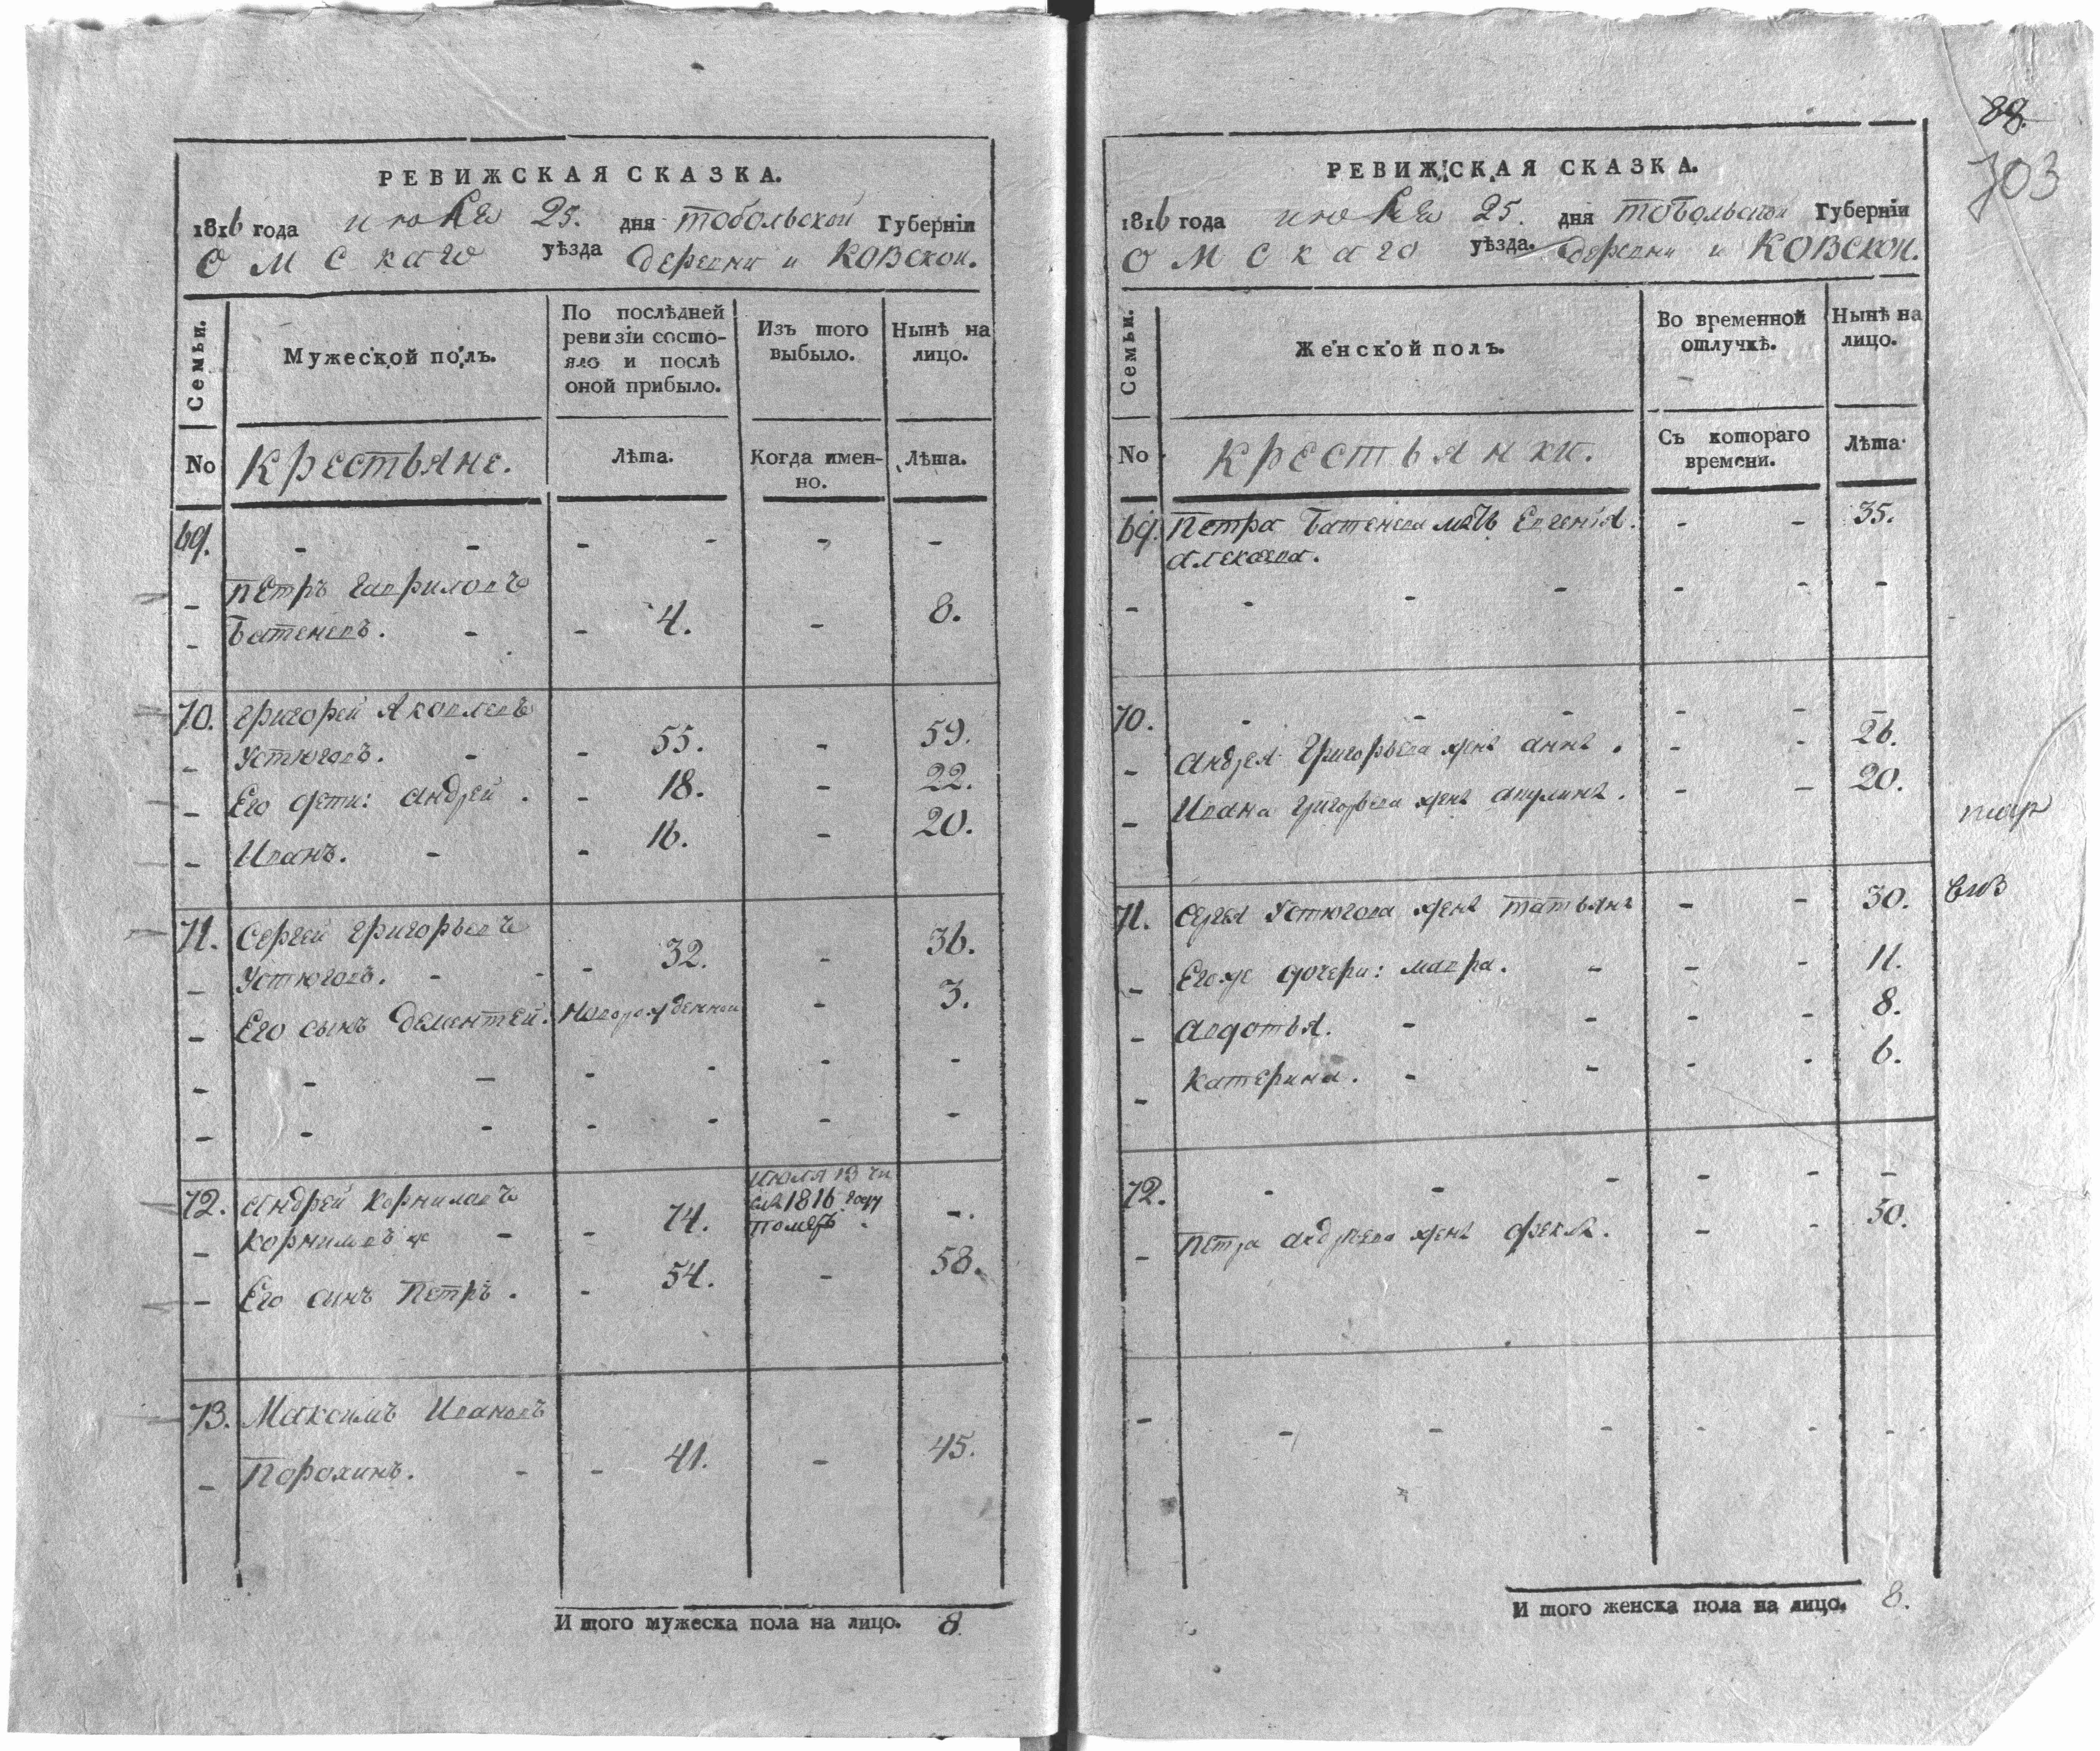 РЕВИЖСКАЯ СКАЗКА.
1816 года июля 25. дня тобольской Губернїи
Омскаго уѣзда деревни иковской.
Семьи. Мужеской полъ. По послѣдней ревизїи состояло и послѣ оной прибыло. Изъ того выбыло. Нынѣ на лицо.
No Крестьяне. Лѣта. Когда именно. Лѣта.
69. - - - - - -
Петръ Гавриловъ
Батеневъ. - - 4. - 8.
70. Григорей Яковлевъ
Устюговъ. - - 55. - 59.
Его дети: андрей. - 18. - 22.
Иванъ. - - 16. - 20.
71. Сергей григорьевъ
Устюговъ. - - - 32. - 36.
Его сынъ Дементей. новорожденной - 3.
72. Андрей Корниловъ
Корниловъ же - - 74. июля 13 чи
сла 1816 году
померъ. -.
Его сынъ Петръ. - 54. - 58.
73. Максимъ Ивановъ
Порохинъ. - - 41. - 45.
И того мужеска пола на лицо. 8
88.
703
РЕВИЖСКАЯ СКАЗКА.
1816 года июля 25. дня тобольской Губернїи
Омскаго уѣзда. деревни иковской.
Семьи. Женской полъ. Во временной отлучкѣ. Нынѣ на лицо.
No Крестьянки. Съ котораго времени. Лѣта
69. Петра Батенева мать Евгенїя - - 35.
алексѣева.
70. - - - - - -
андрея Григорьева жена анна. - - 26.
Ивана григорьева жена акулина. - - 20.
71. Сергея Устюгова жена татьяна - - 30.
Егоже дочери: мавра. - - - 11.
авдотья. - - - - 8.
Катерина. - - - - 6.
72. - - - - - -
Петра андреева жена фекла. - - 50.
И того женска пола на лицо. 8.